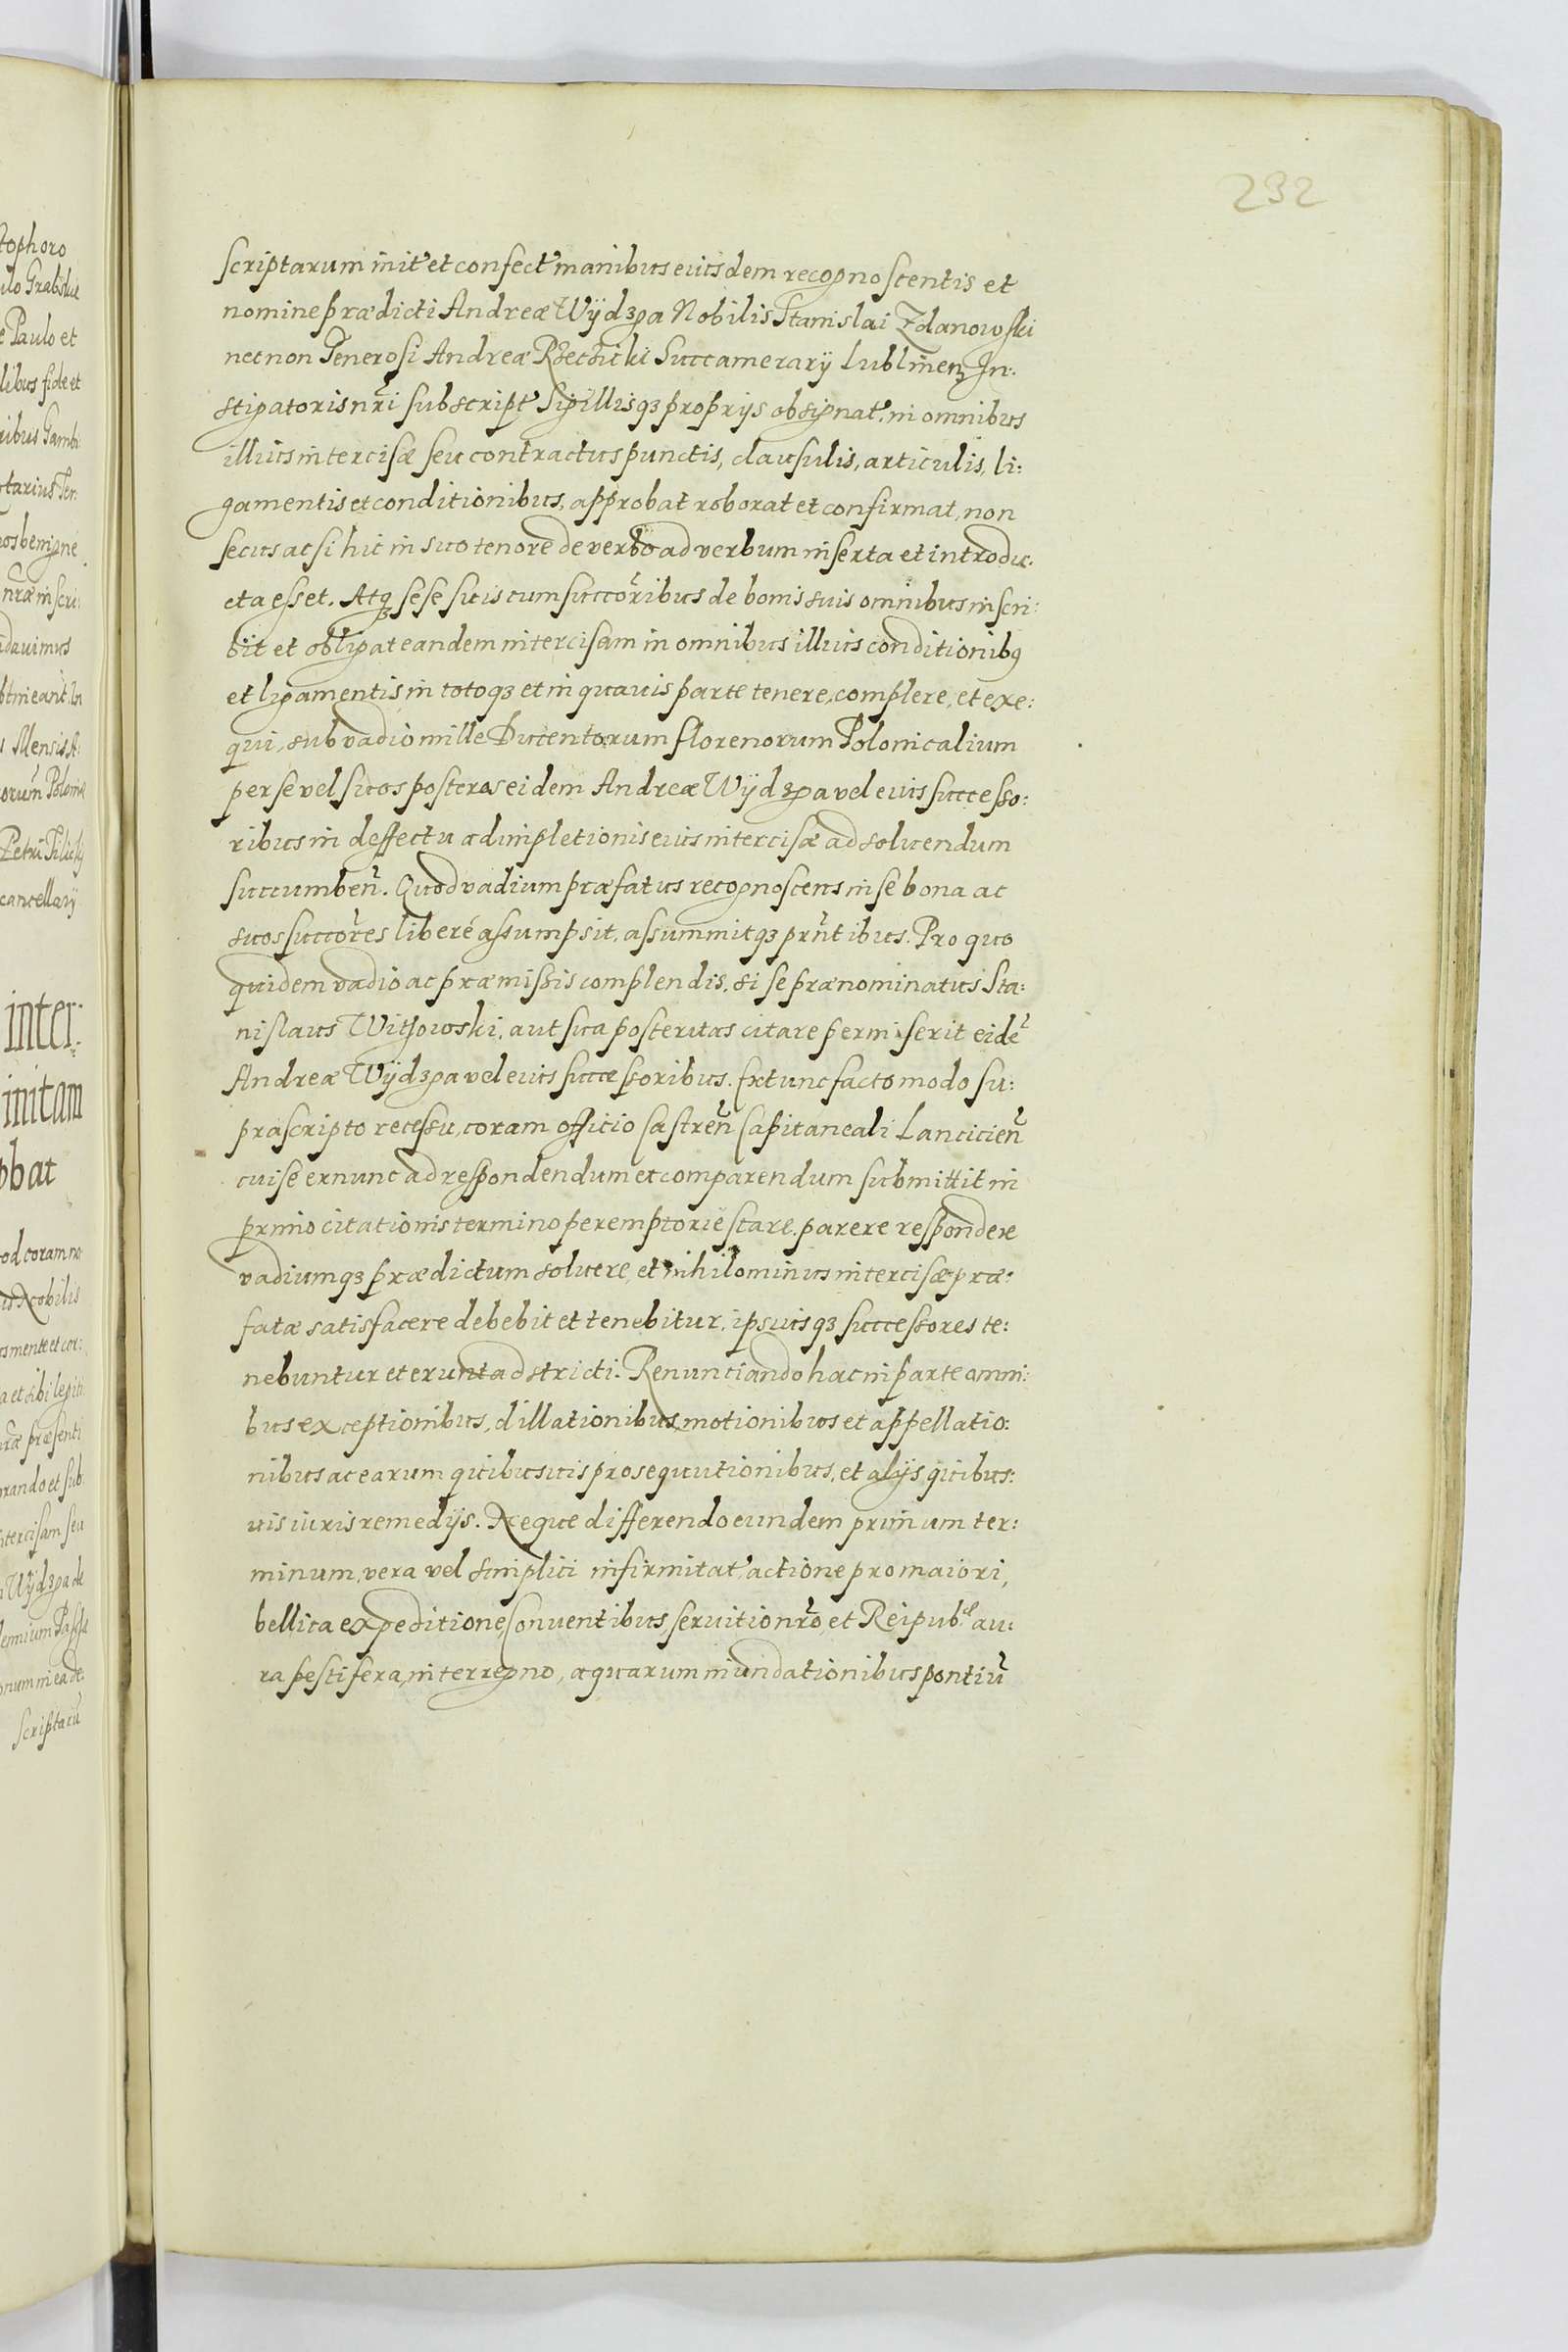 292
scriptarum init' et confect' manibus eiusdem recognoscentis et
nomine prædicti Andreæ Wÿdzga Nobilis Stanislai Zdanowski
necnon Generosi Andreæ Rzeczicki Succamerarÿ Lublinen In:
stigatoris nr̃i subscript' Sigillisqʒ proprÿs obsignat'. in omnibus
illius intercisæ seu contractus punctis, clausulis, articulis, li:
gamentis et conditionibus, approbat roborat et confirmat, non
secus ac si hic in suo tenore de verbo ad verbum inserta et introduc:
cta esset. Atqʒ sese suis cum succõribus de bonis suis omnibus inscri:
bit et obligat eandem intercisam in omnibus illius conditionibꝰ
et ligamentis in totoqʒ et in quauis parte tenere, complere, et exe:
qui, sub vadio mille Ducentorum florenorum Polonicalium
per se vel suos posteros eidem Andreæ Wÿdzga vel eius successo:
ribus in deffectu adimpletionis eius intercisæ ad soluendum
succumbeñ. Quod vadium præfatus recognoscens in se bona ac
suos succõres liberé assumpsit, assummitqʒ prñtibus. Pro quo
quidem vadio ac præmissis complendis, si se prænominatus Sta:
nislaus Witowski, aut sua posteritas citare permiserit eidẽ
Andreæ Wÿdzga vel eius successoribus. Extunc facto modo su:
prascripto recessu, coram officio Castreñ Capitaneali Lancicieñ
cui se exnunc ad respondendum et comparendum submittit in
primo citationis termino peremptorie stare, parere respondere
vadiumqʒ prædictum soluere, et nihilominus intercisæ præ:
fatæ satisfacere debebit et tenebitur, ipsiusqʒ successores te:
nebuntur et erunt adstricti. Renunciando hac in parte omni:
bus exceptionibus, dillationibus, motionibus et appellatio:
nibus ac earum quibusuis prosequutionibus, et alÿs quibus:
uis iuris remedÿs. Neque differendo eundem primum ter:
minum, vera vel simplici infirmitat' actione pro maiori,
bellica expeditione, Conuentibus, seruitio nr̃o, et Reipub:ce au:
ra pestifera, interregno, aquarum inundationibus pontiũ